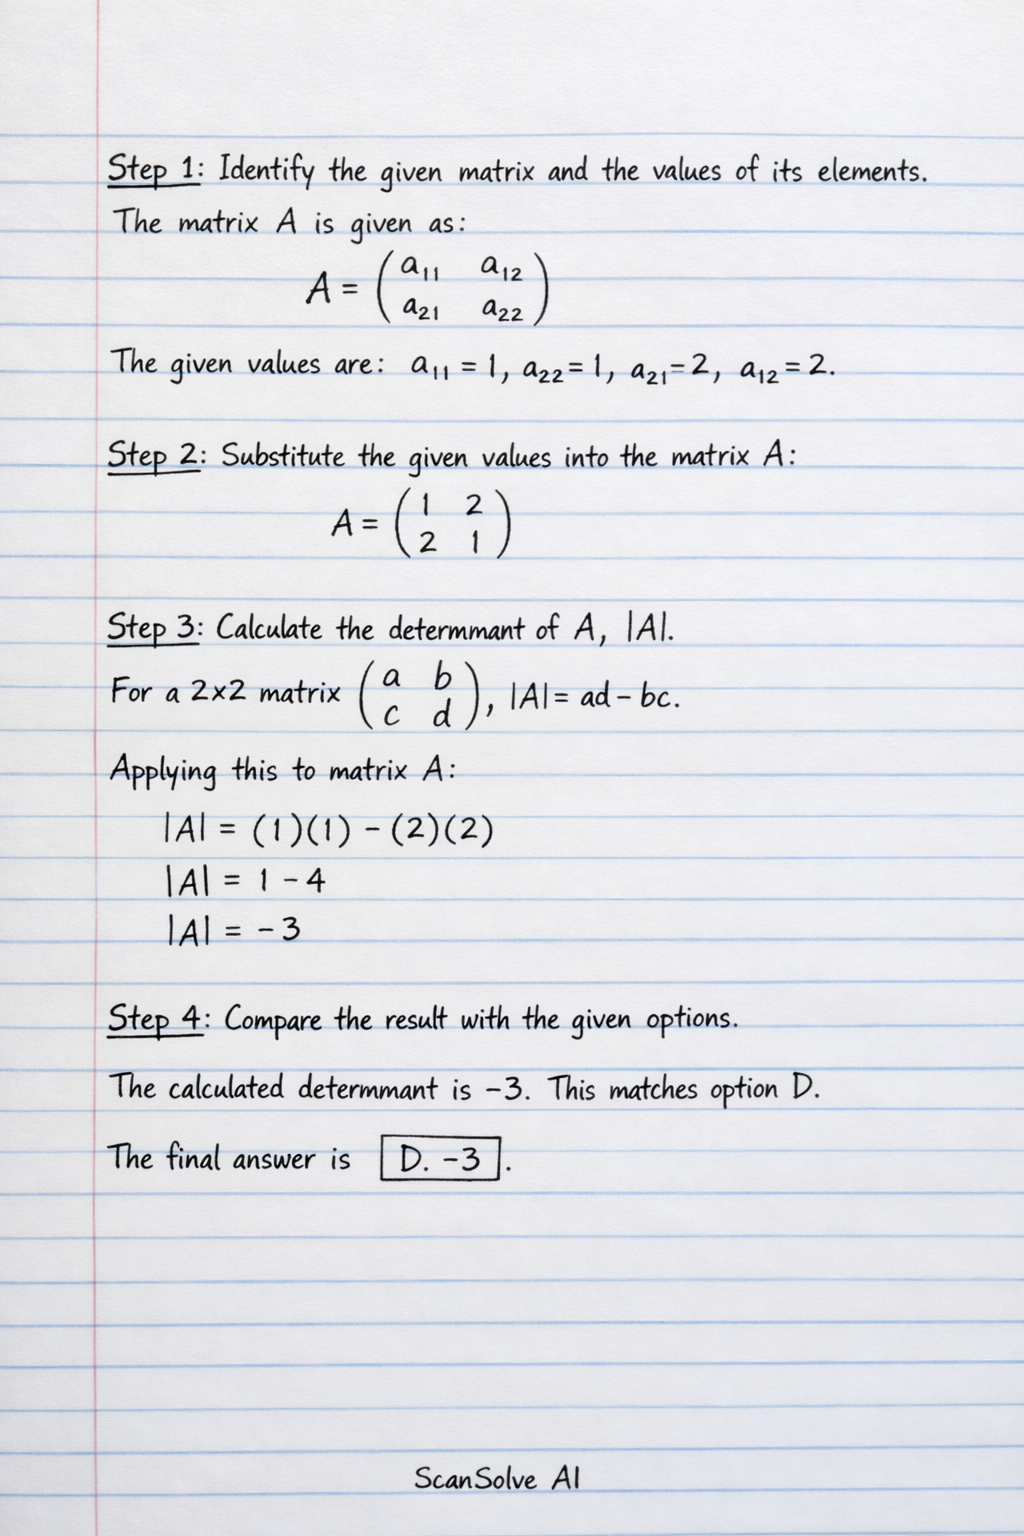 Step 1: Identify the given matrix and the values of its elements.
The matrix A is given as:
A = ( a11 a12
a21 a22 )
The given values are: a11 = 1, a22 = 1, a21 = 2, a12 = 2.
Step 2: Substitute the given values into the matrix A:
A = ( 1 2
2 1 )
Step 3: Calculate the determmant of A, |A|.
For a 2×2 matrix ( a b
c d ), |A| = ad - bc.
Applying this to matrix A:
|A| = (1)(1) - (2)(2)
|A| = 1 - 4
|A| = -3
Step 4: Compare the result with the given options.
The calculated determmant is -3. This matches option D.
The final answer is D. -3.
ScanSolve AI